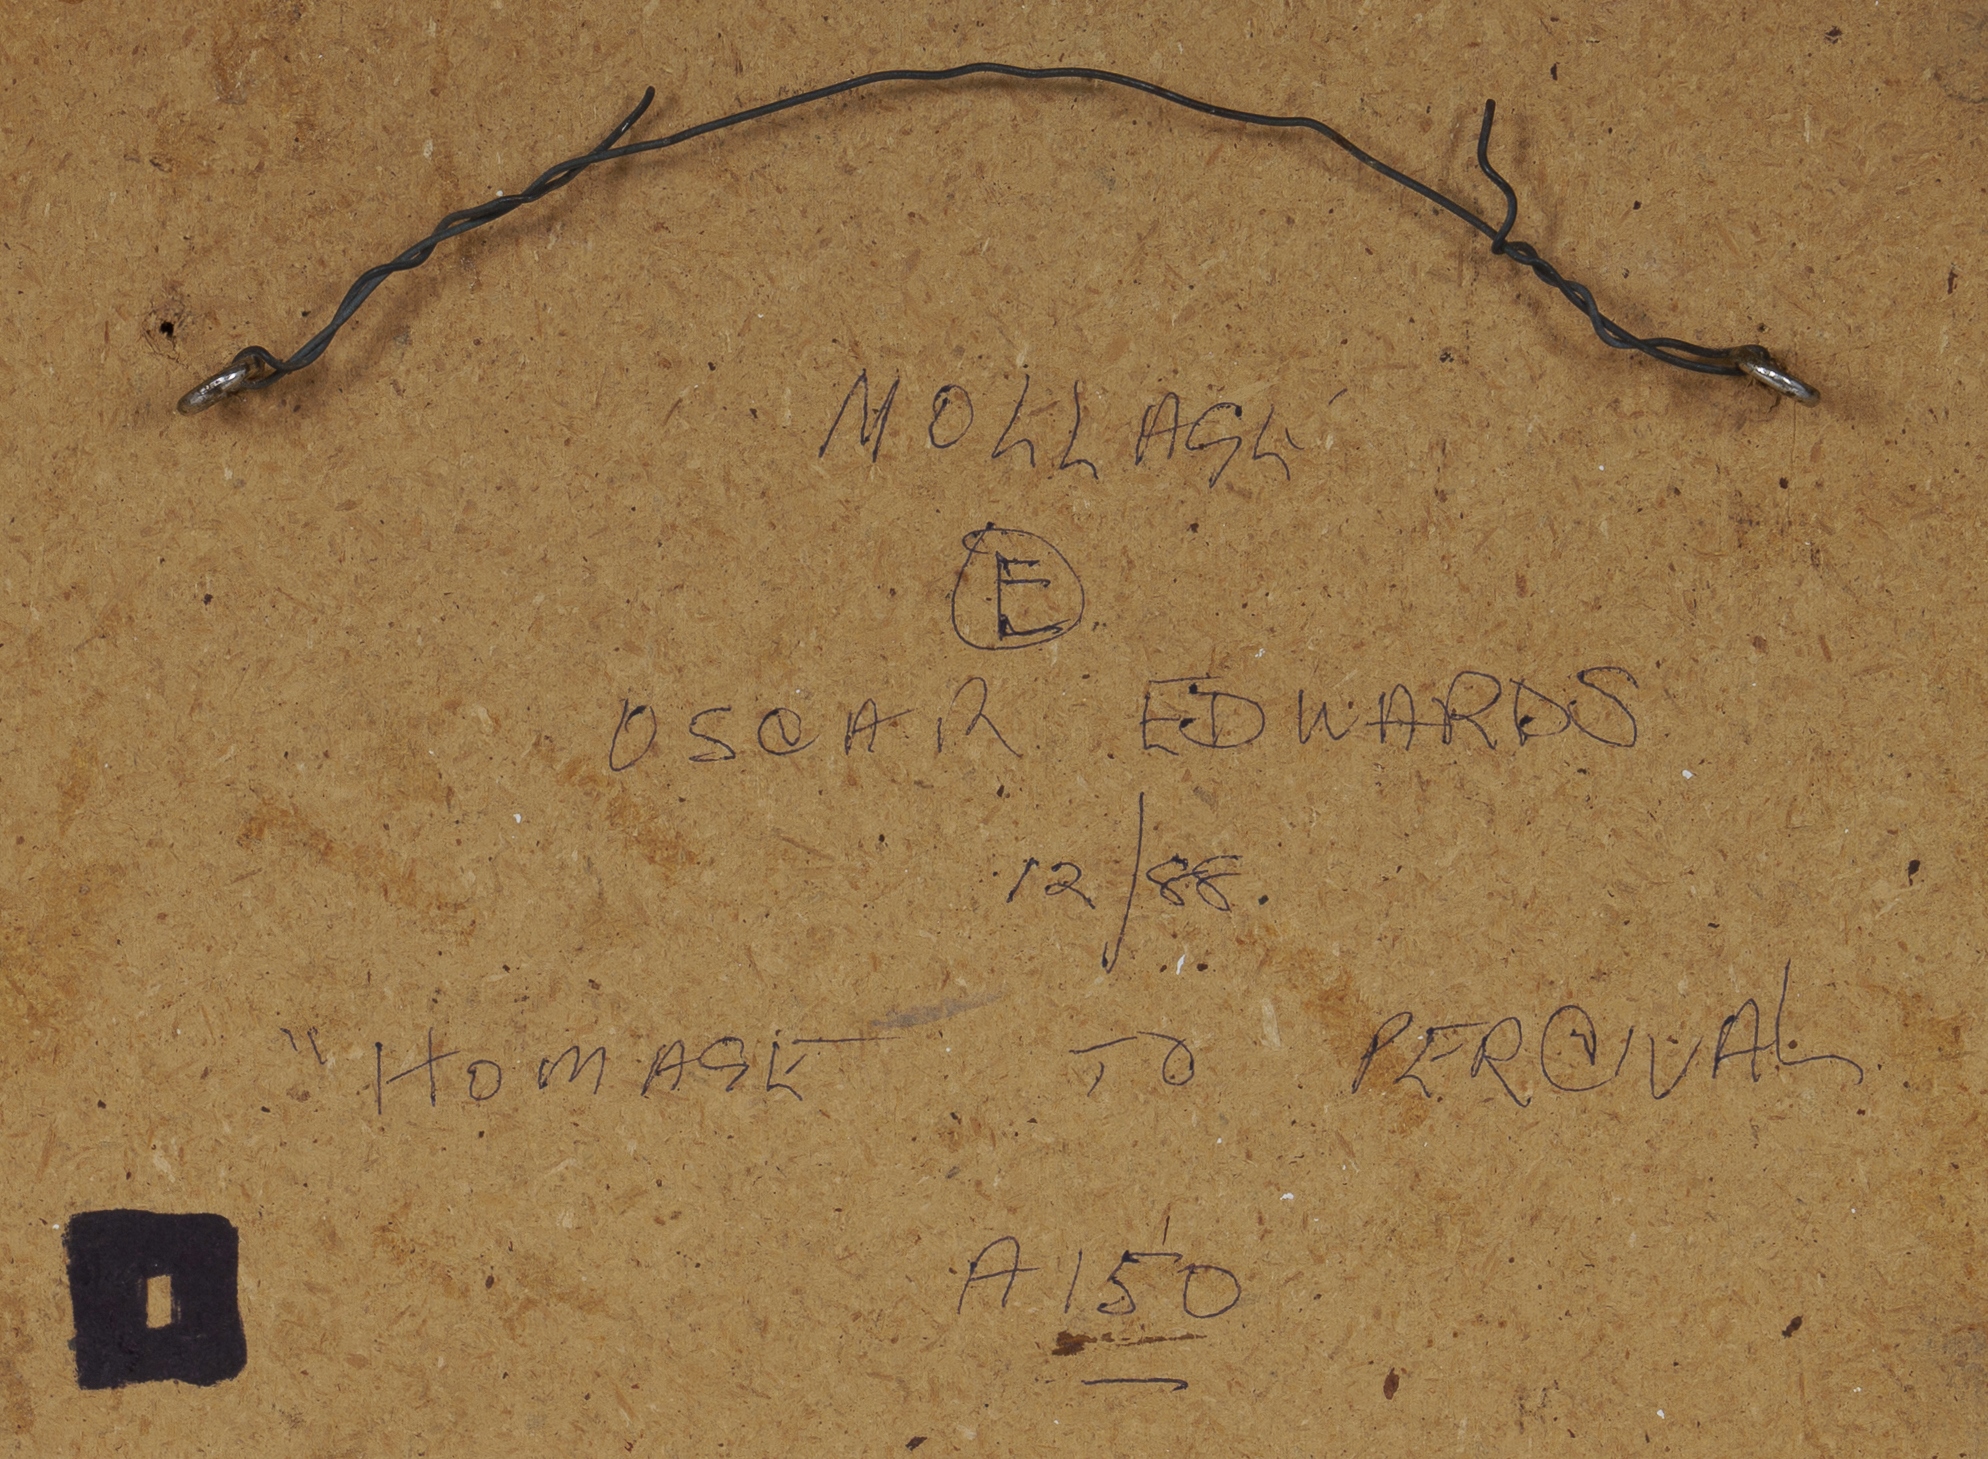 MOLLAGE
E
OSCAR EDWARDS
12/88.
"HOMAGE TO PERCIVAL
A150